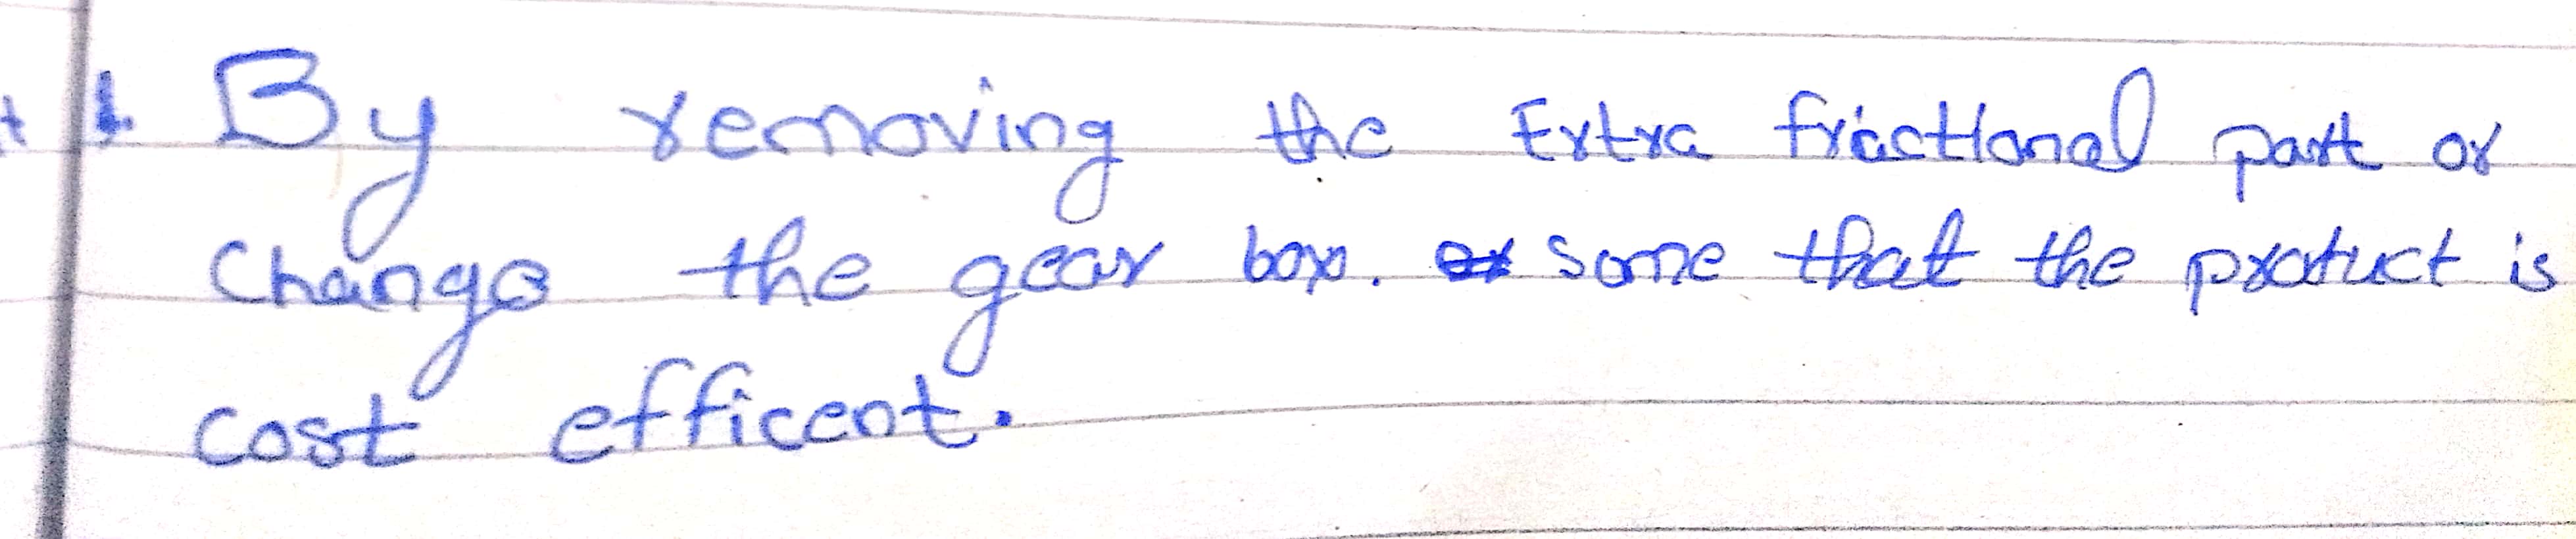 1. By removing the Extra fractional part or
change the gear box. some that the product is
cost efficent.